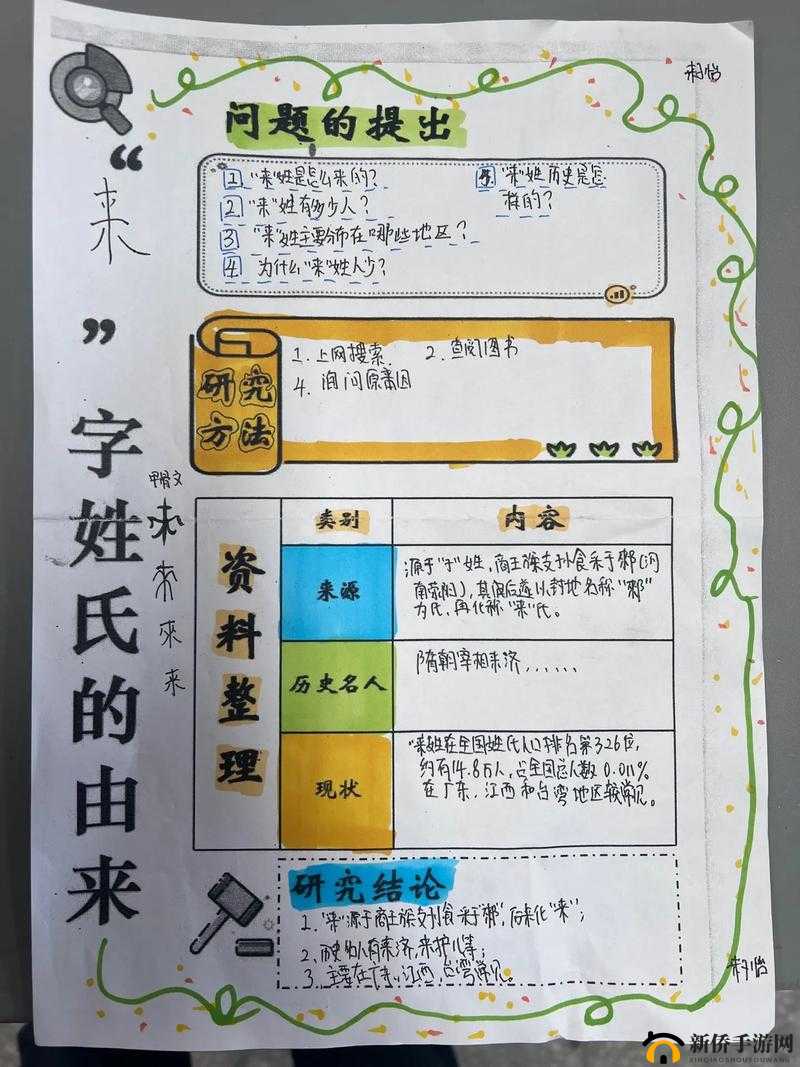 “来”字姓氏的由来
问题的提出
1 “来”姓是怎么来的？
2 “来”姓有多少人？
3 “来”姓主要分布在哪些地区？
4 为什么“来”姓人少？
5 “来”姓历史是怎
样的？
研究
方法
1. 上网搜索 2. 查阅图书
4. 询问
甲骨文
来
资料整理
类别
内容
来源
源于“子”姓，商王族支孙食采于郲（河
南荥阳），其后遂以封地名称“郲”
为氏，再化称“来”氏。
历史名人
隋朝宰相来济，......
现状
“来”姓在全国姓氏人口排名第326位，
约有14.8万人，占全国总人数0.011%
在广东、江西和台湾地区较常见。
研究结论
1. “来”源于商王族支孙食采于“郲”，后来化“来”；
2. 历史名人有来济，来护儿等；
3. 主要在广东、江西、台湾常见。
新侨手游网
XINQIAOSHOUYOUWANG